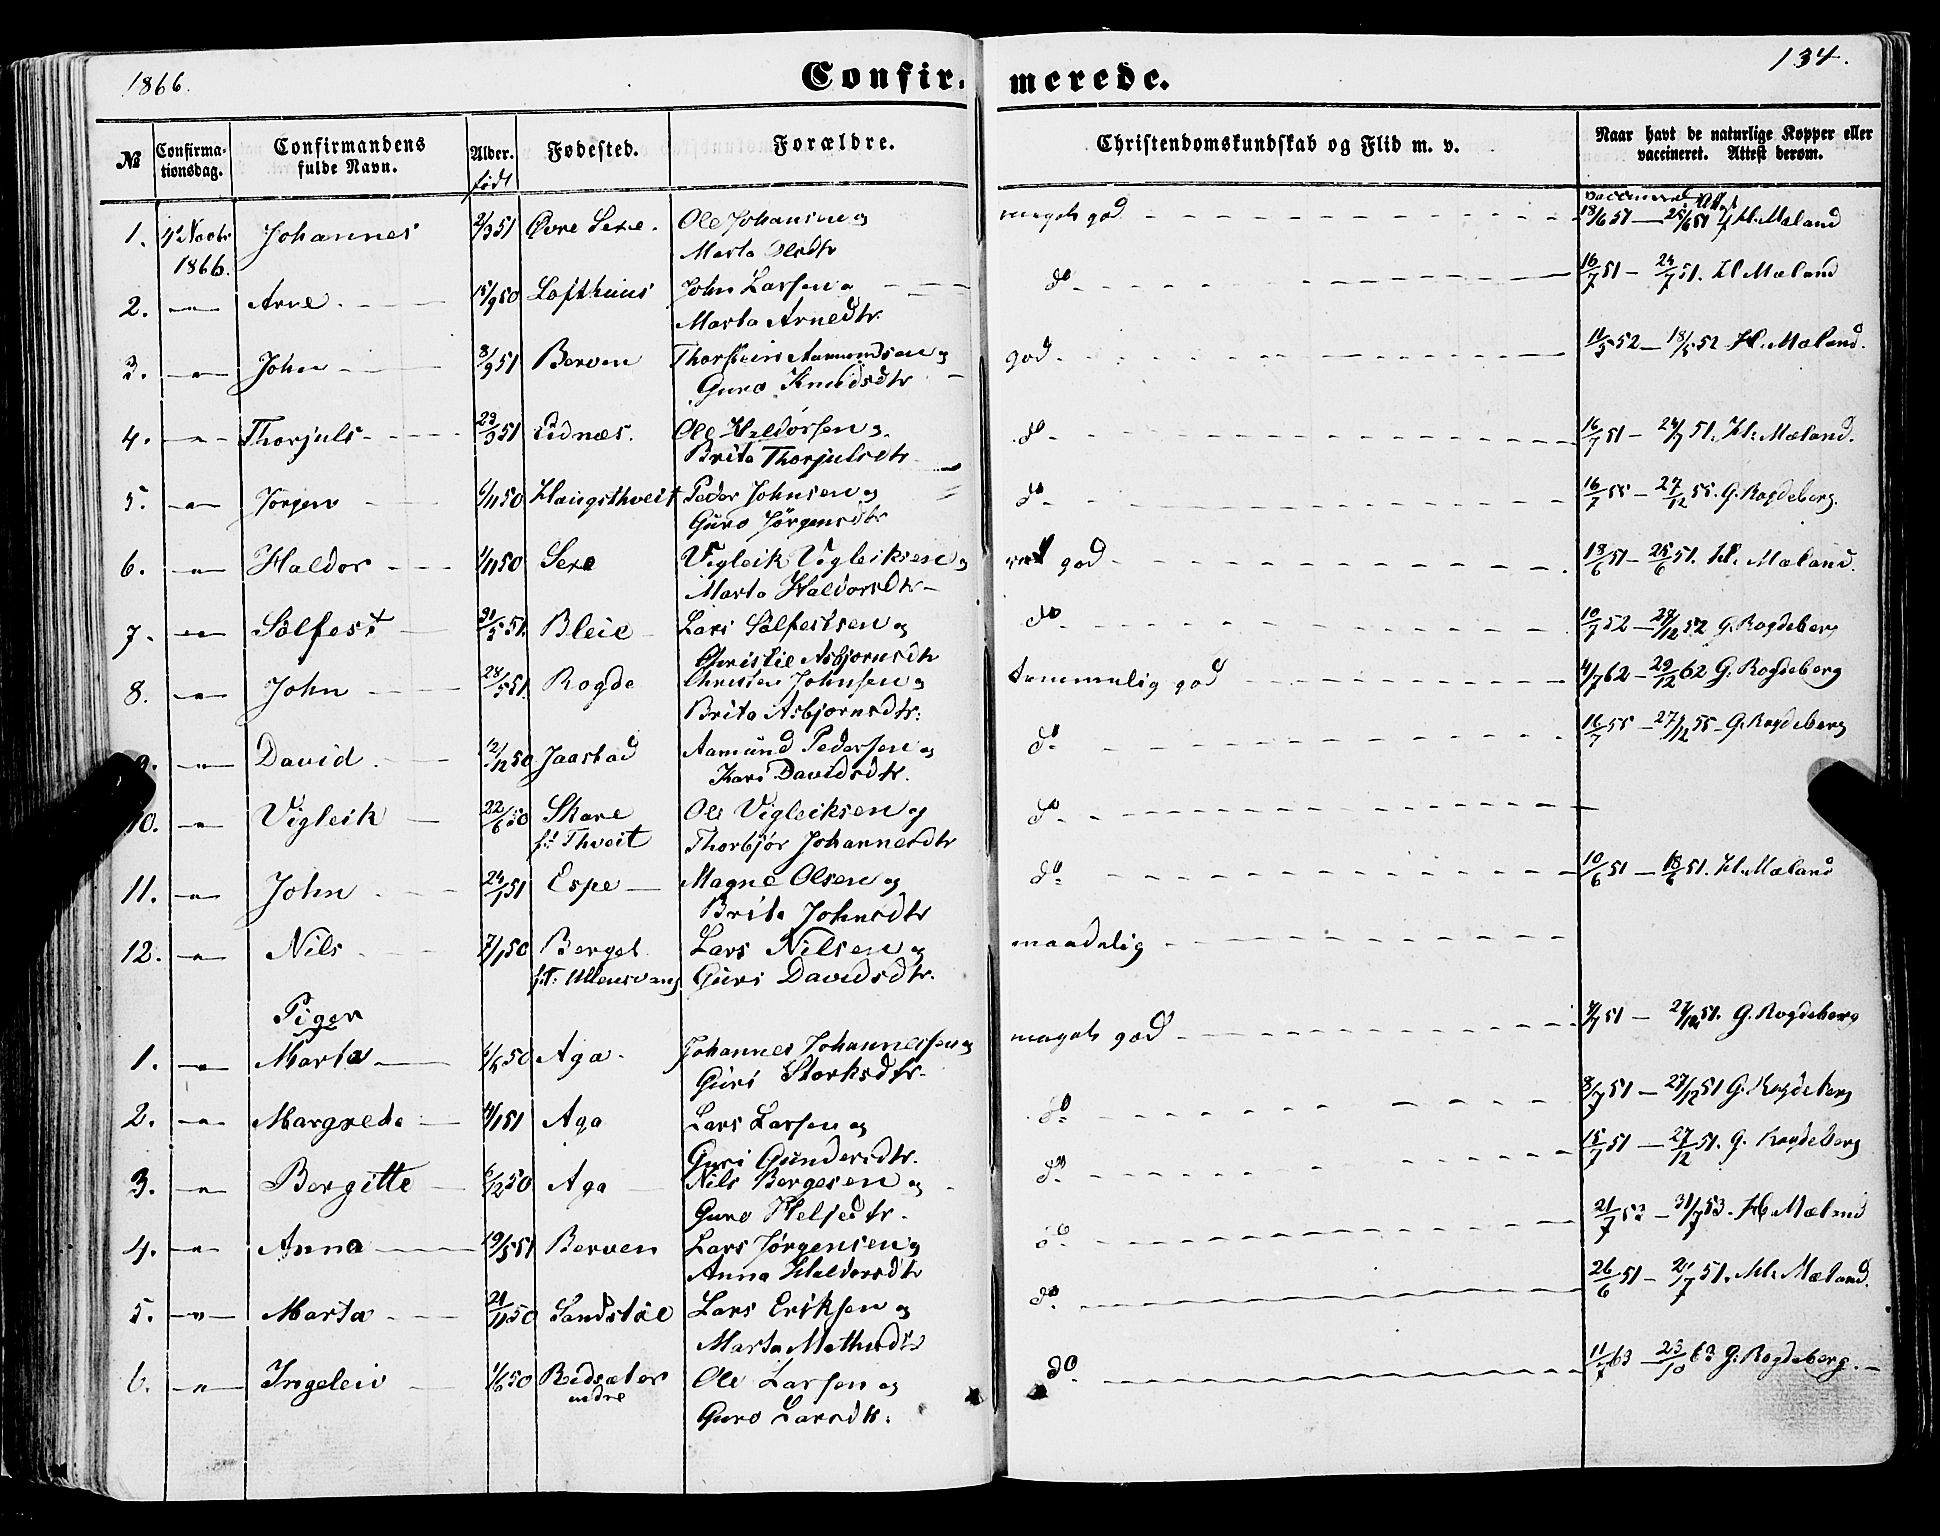 1866.
Confirmerede.
134.
№ Confirmationsdag. Confirmandens fulde Navn. Alder. født Fødested. Forældre. Christendomskundskab og Flid m. v. Naar havt de naturlige Kopper eller vaccineret. Attest derom.
1. 4de Novbr 1866. Johannes 2/3 51 Øvre Sexe. Ole Johansen og Marta Olsdtr meget god 18/6 51 — 25/6 51 Hl. Mæland
2. —"— Arne 15/9 50 Lofthuus John Larsen og Marta Arnedtr do 16/7 51 — 24/7 51. Hl Mæland
3. —"— John 8/9 51 Berven Thorstein Aamundsen og Guro Knudsdtr god 11/5 52 — 18/5 52 Hl. Mæland.
4. —"— Thorjuls 23/3 51 Eidnæs. Ole Haldorsen og Brita Thorjulsdtr do 16/7 51 — 24/7 51. Hl: Mæland.
5. —"— Jørgen 6/11 50 Haugsthveit Peder Johnsen og Guro Jørgensdtr do 16/7 55 — 27/12 55. G. Rogdeberg.
6. —"— Haldor 1/11 50 Sexe Vigleik Vigleiksen og Marta Haldorsdtr god 18/6 51 — 25/6 51. Hl. Mæland.
7. —"— Sølfest 31/5 51. Bleie Lars Sølfestsen og Christie Asbjørnsdtr do 10/7 52 — 29/12 52 G. Rogdeberg
8. —"— John 28/5 51. Rogde Johnsen og Brita Asbjørnsdtr: temmelig god 4/7 62 — 29/12 62 G. Rogdeberg
9. —"— David 12/12 50 Jaastad Aamund Pedersen og Kari Davidsdtr. do 16/7 55 — 27/12 55 — G. Rogdeberg
10. —"— Vigleik 22/6 50 Skare f: Thveit Ole Vigleiksen og Thorbjør Johannesdtr do
11. —"— John 24/1 51 Espe Magne Olsen og Brita Johnsdtr do 10/6 51 — 18/6 51. Hl. Mæland
12. —"— Nils 7/1 50 Berget f: Ullensvang Lars Nilsen og Guri Davidsdtr. maadelig
Piger
1. —"— Marta 50 Aga. Johannes Johannessen og Guri Storksdtr. meget god 51 — 27/12 51. G. Rogdeberg
2. —"— Margrete 51 Aga Lars Larsen og Guri Gundersdtr. do 8/7 51 — 27/12 51 G. Rogdeberg
3. —"— Bergitte 6/12 50 Aga Nils Bergesen og Guro Heljedtr. do 15/7 51 — 27/12 51. G. Rogdeberg
4. —"— Anna 19/5 51 Berven Lars Jørgensen og Anna Haldorsdtr do 21/7 53 — 31/7 53. Hl. Mæland
5. —"— Marta 21/11 50 Sandstøe Lars Eriksen og Marta do 26/6 51 — 2/7 51. Hl: Mæland.
6. —"— Ingeleiv 1/6 50 Reisæter nedre Ole Larsen og Guro Larsdtr: do 11/7 63 — 23/10 63 G: Rogdeberg.